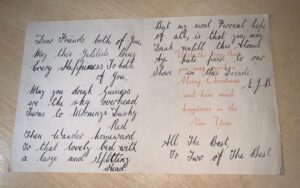 Dear Friends both of You,
May this Yuletide bring
Every Happiness To both
of You.
May you dough Guiness
we the sky overhead
Turns to Mornings Dusky
Red
Then Wander homeward
To that lovely bed with
a large and Splitting
Head.
But my most Fervent hope
of all, is that you may
bank until this Hand
by Fate paid to our
Share in this Decade
E.J.B
Merry Christmas
and have much
happiness in the
New Year
All The Best,
To Two of The Best.